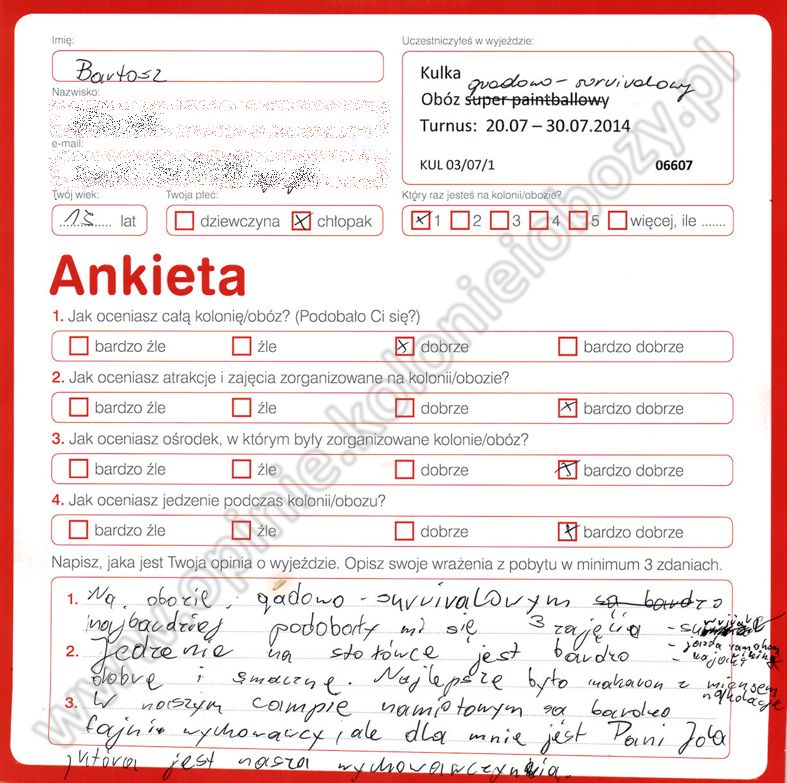 Imię:
Bartosz
Uczestniczyłeś w wyjeździe:
Kulka
quadowo - survivalowy
Obóz super paintballowy
Turnus: 20.07 – 30.07.2014
KUL 03/07/1 06607
Nazwisko:
e-mail:
Twój wiek: Twoja płeć: Który raz jesteś na kolonii/obozie?
lat dziewczyna chłopak 1 2 3 4 5 więcej, ile .......
Ankieta
1. Jak oceniasz całą kolonię/obóz? (Podobało Ci się?)
bardzo źle źle dobrze bardzo dobrze
2. Jak oceniasz atrakcje i zajęcia zorganizowane na kolonii/obozie?
bardzo źle źle dobrze bardzo dobrze
3. Jak oceniasz ośrodek, w którym były zorganizowane kolonie/obóz?
bardzo źle źle dobrze bardzo dobrze
4. Jak oceniasz jedzenie podczas kolonii/obozu?
bardzo źle źle dobrze bardzo dobrze
Napisz, jaka jest Twoja opinia o wyjeździe. Opisz swoje wrażenia z pobytu w minimum 3 zdaniach.
1. Na obozie qadowo - survivalowym są bardzo
najbardziej podobały mi się 3 zajęcia
2. Jedzenie na stołówce jest bardzo
dobre i smaczne. Najlepsze było makaron z mięsem
3. W naszym campie namiotowym są bardzo
fajni wychowawcy, ale dla mnie jest Pani Jola
która jest nasza
www.opinie.kolonieiobozy.pl